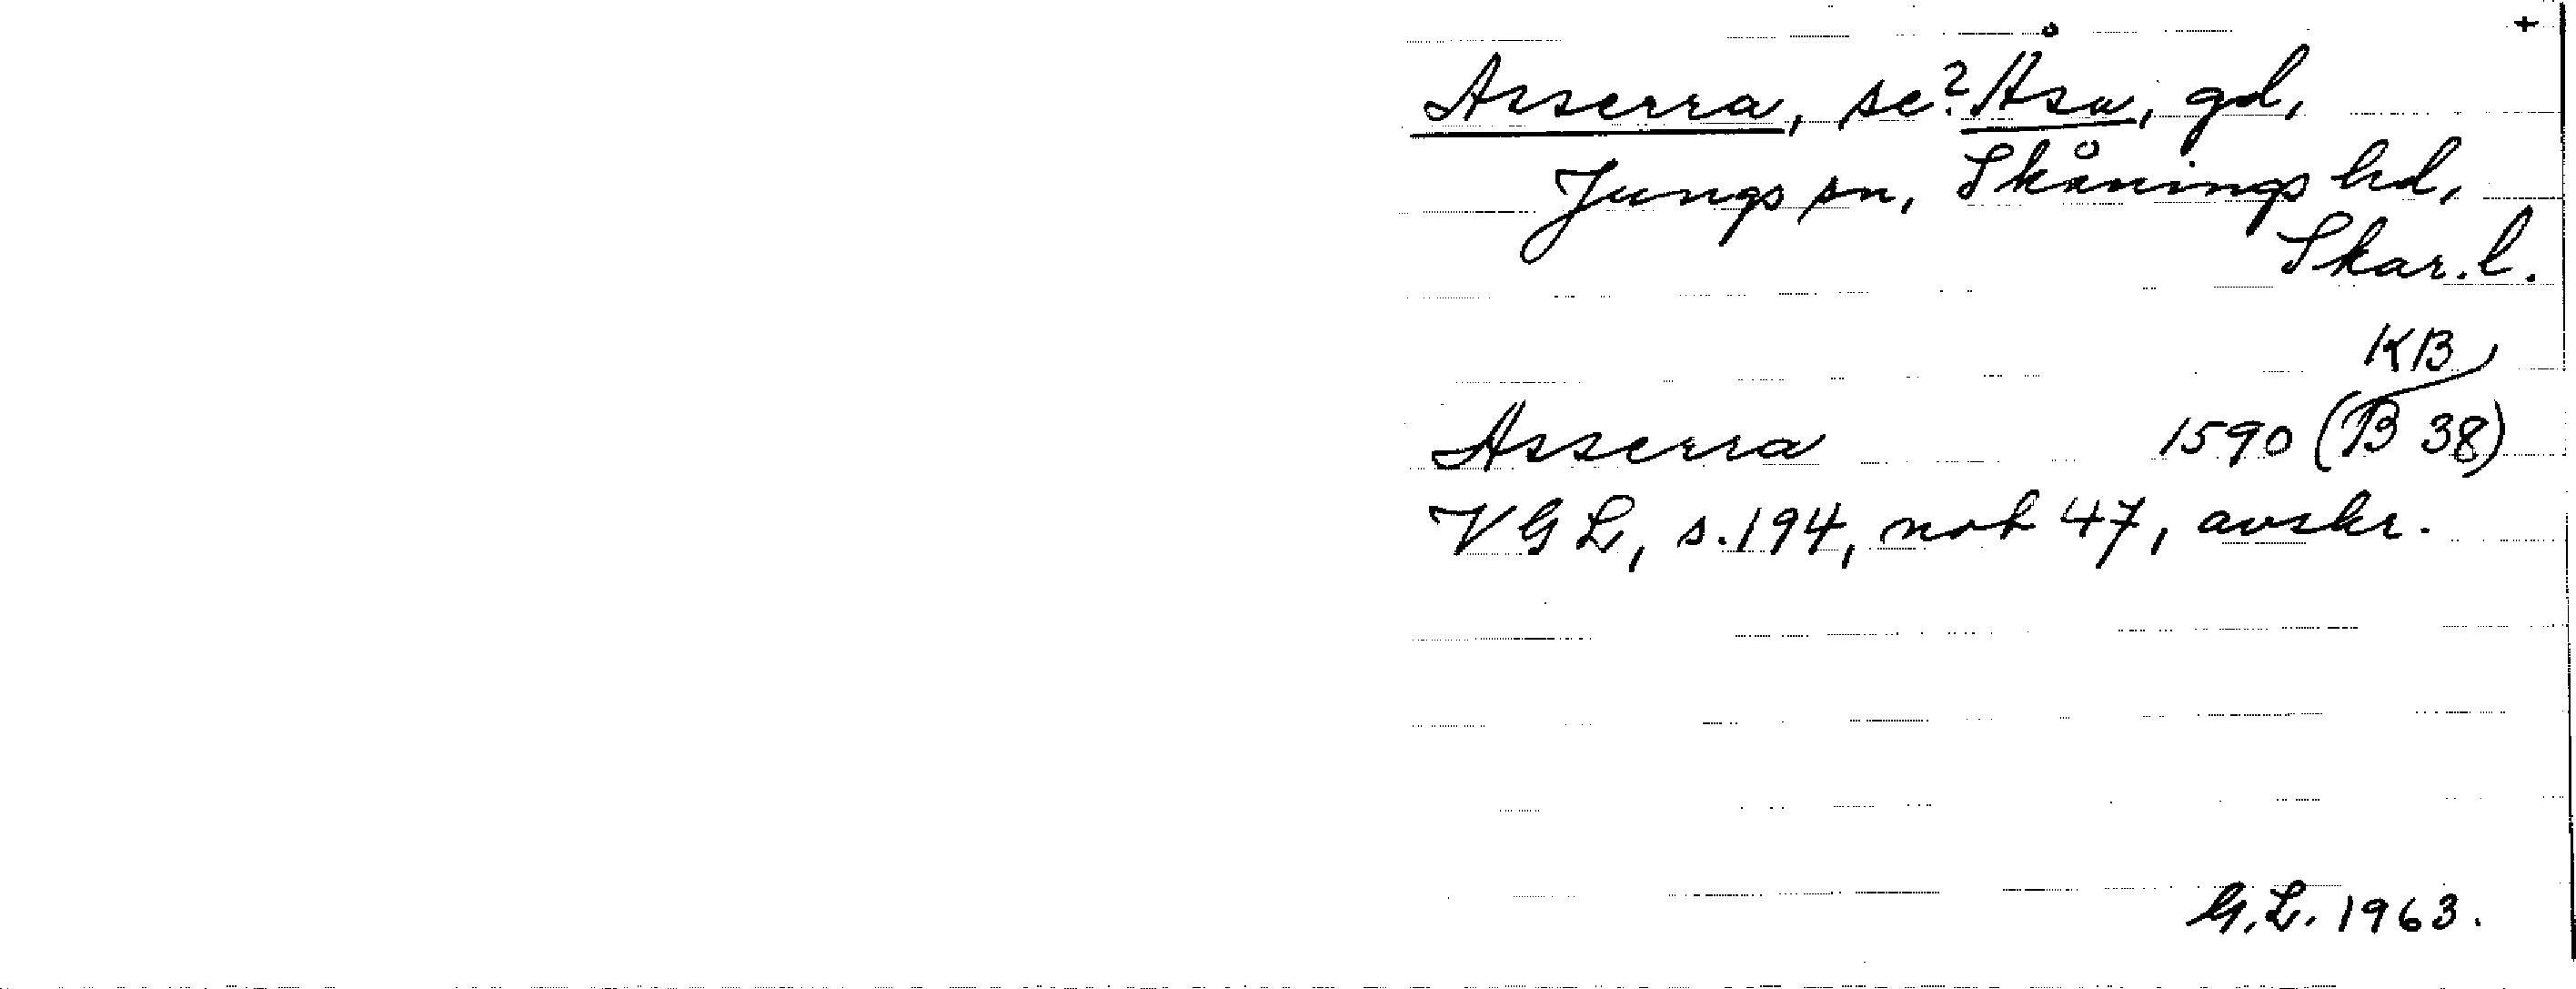 +
Asserra, se? Åsa, gd,
Jungs sn, Skånings hd,
Skar. l.
KB
Asserra 1590 (B 38)
VGL, s. 194, not 47, avskr.
G.L. 1963.